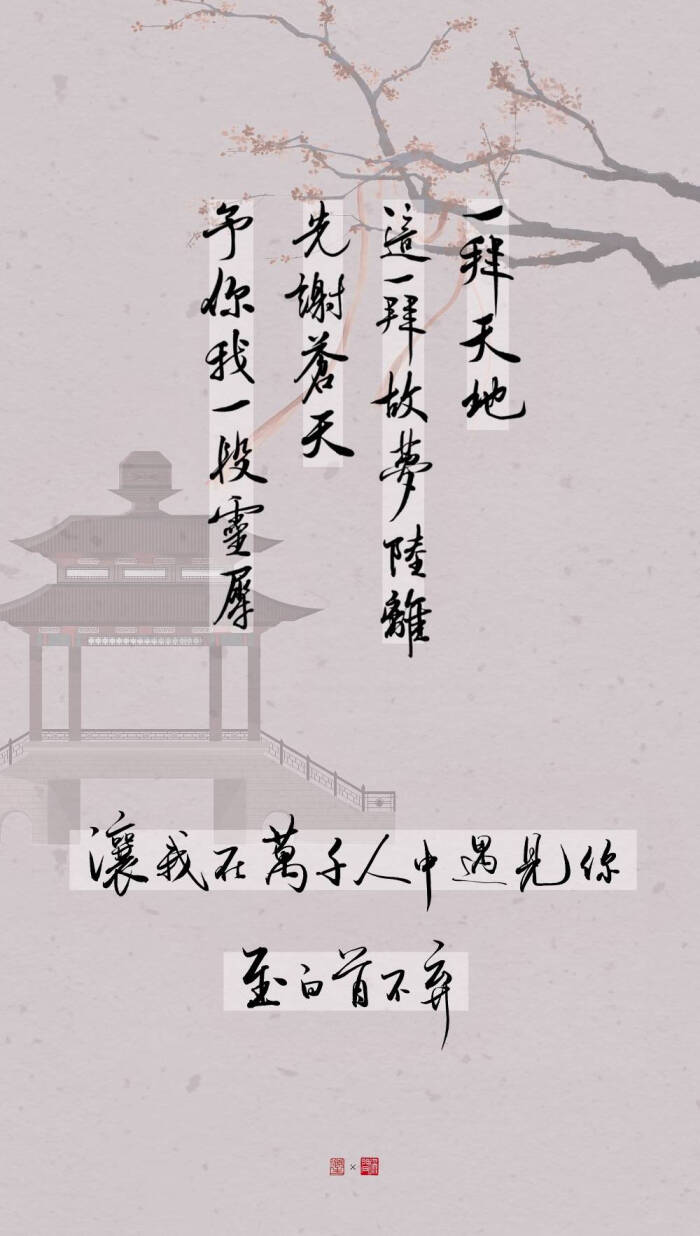 一拜天地
這一拜故夢陸離
先謝蒼天
予你我一段靈犀
讓我在萬千人中遇見你
至白首不棄
×